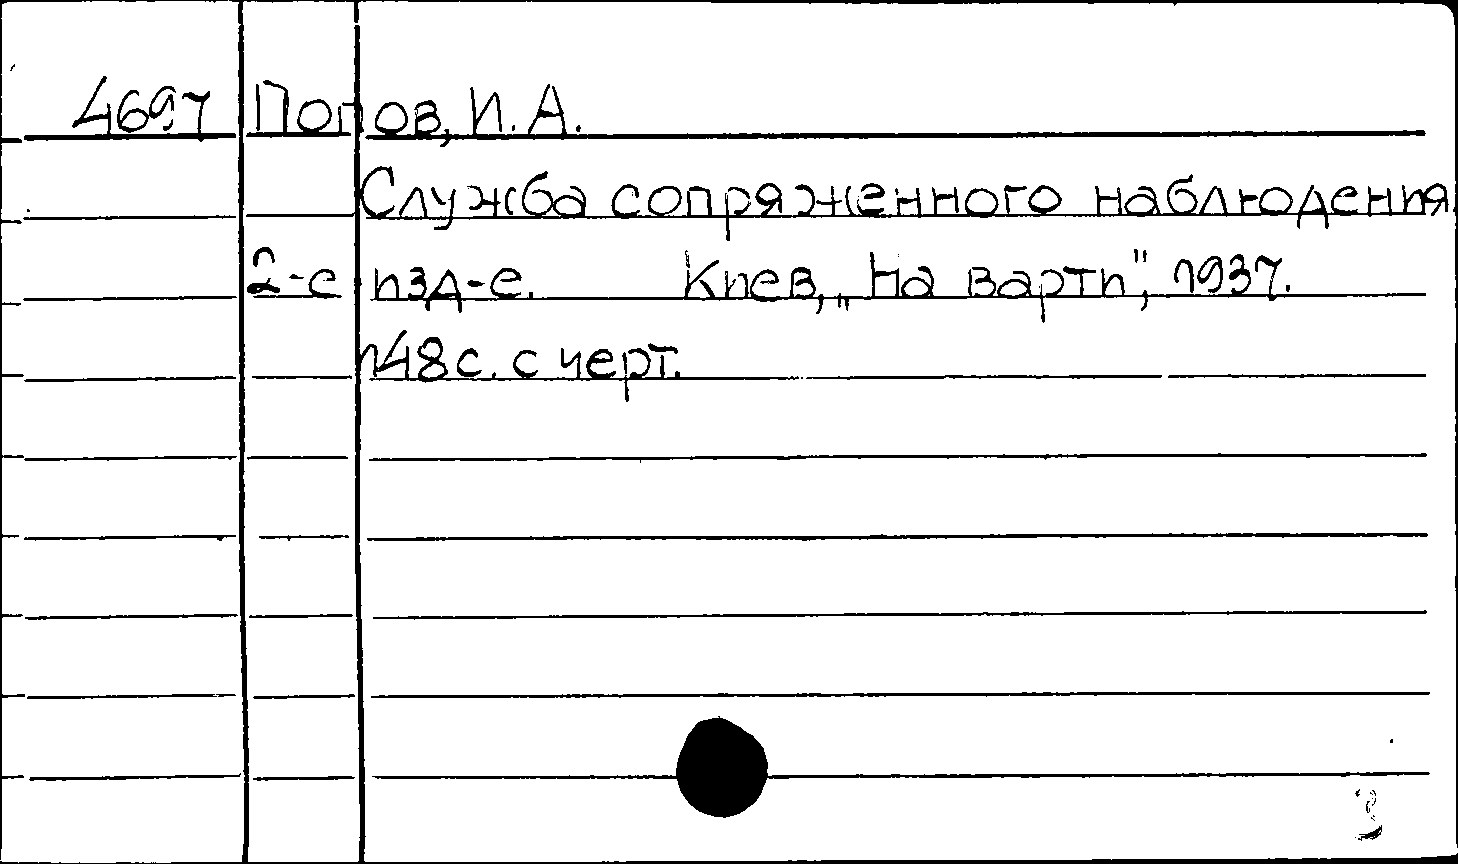 4697 Попов, И. А.
Служба сопряженного наблюдения.
2-е изд-е. Киев, „На варти", 1937.
148 с. с черт.
3